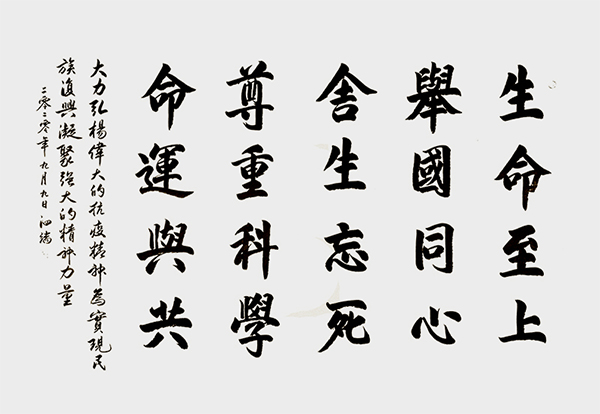 生命至上
舉國同心
舍生忘死
尊重科學
命運與共
大力弘楊偉大的抗疫精神為實現民
族復興凝聚強大的精神力量
二零二零年九月九日